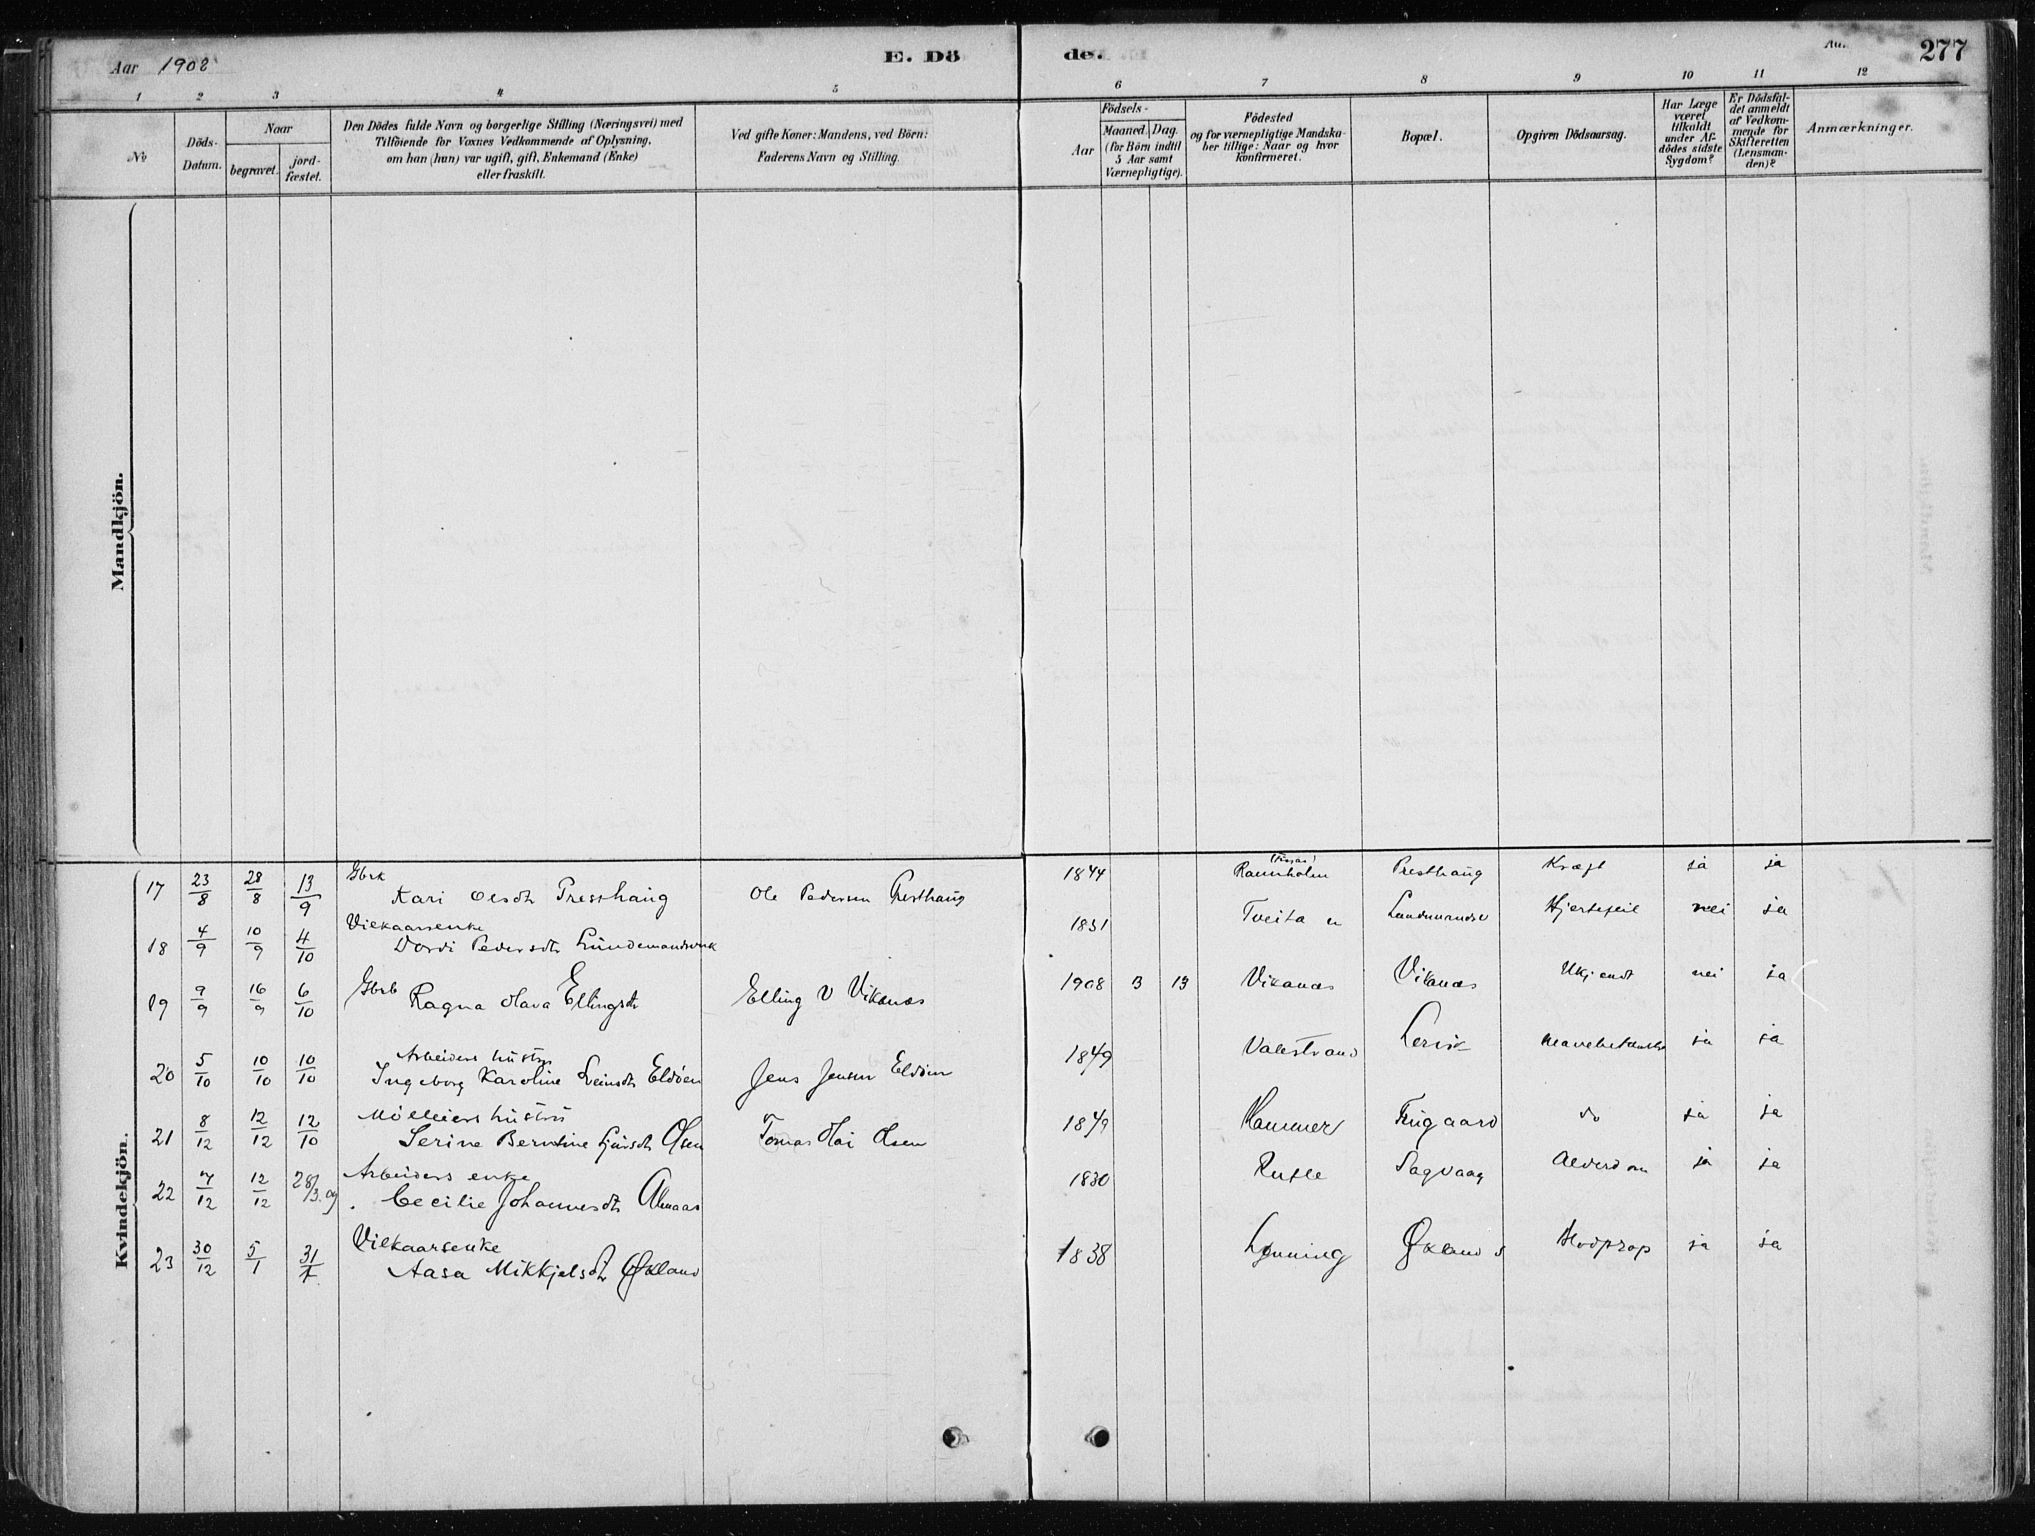 Aar 1908
E. Dö
de.
277
1 2 3 4 5 6 7 8 9 10 11 12
No
Döds-Datum.
Naar
begravet.
jordfæstet.
Den Dödes fulde Navn og borgerlige Stilling (Næringsvei) med
Tilföiende for Voxnes Vedkommende af Oplysning,
om han (hun) var ugift, gift, Enkemand (Enke)
eller fraskilt.
Ved gifte Koner: Mandens, ved Börn:
Faderens Navn og Stilling.
Födsels-
Aar
Maaned. Dag.
(for Börn indtil
5 Aar samt
Værnepligtige).
Födested
og for værnepligtige Mandska-
ber tillige: Naar og hvor
konfirmeret.
Bopæl.
Opgiven Dödsaarsag.
Har Læge
været
tilkaldt
under Af-
dödes sidste
Sygdom?
Er Dödsfal-
det anmeldt
af Vedkom-
mende for
Skifteretten
(Lensman-
den)?
Anmærkninger.
Mandkjön.
Kvindekjön.
Gbrk
17 23/8 28/8 13/9 Kari Olsdtr Presthaug Ole Pedersen Presthaug 1844 Presthaug Kræft ja ja
Vilkaarsenke
18 4/9 10/9 4/10 Dordi Pedersdtr 1831 Tveita Hjertefeil nei ja
Gbrb
19 9/9 16/9 6/10 Ragna Olava Ellingsdtr Elling V Vikanes 1908 3 13 Vikanes Vikanes Ukjendt nei ja
Arbeiders hustru
20 5/10 10/10 10/10 Ingeborg Karoline Eldöen Jens Jensen Eldöen 1849 Valestrand Lervik ja ja
Mölleiers hustru
21 8/12 12/12 12/10 Serine Berntine Olsen Tomas Olai Olsen 1849 Hammer do ja ja
Arbeiders enke
22 7/12 12/12 28/3.09 Cecilie Johannesdtr Almaas 1830 Sagvaag Alderdom ja ja
Vilkaarsenke
23 30/12 5/1 31/1 Aasa Mikkjelsdtr Økland 1838 Lønning Økland Blodprop ja ja